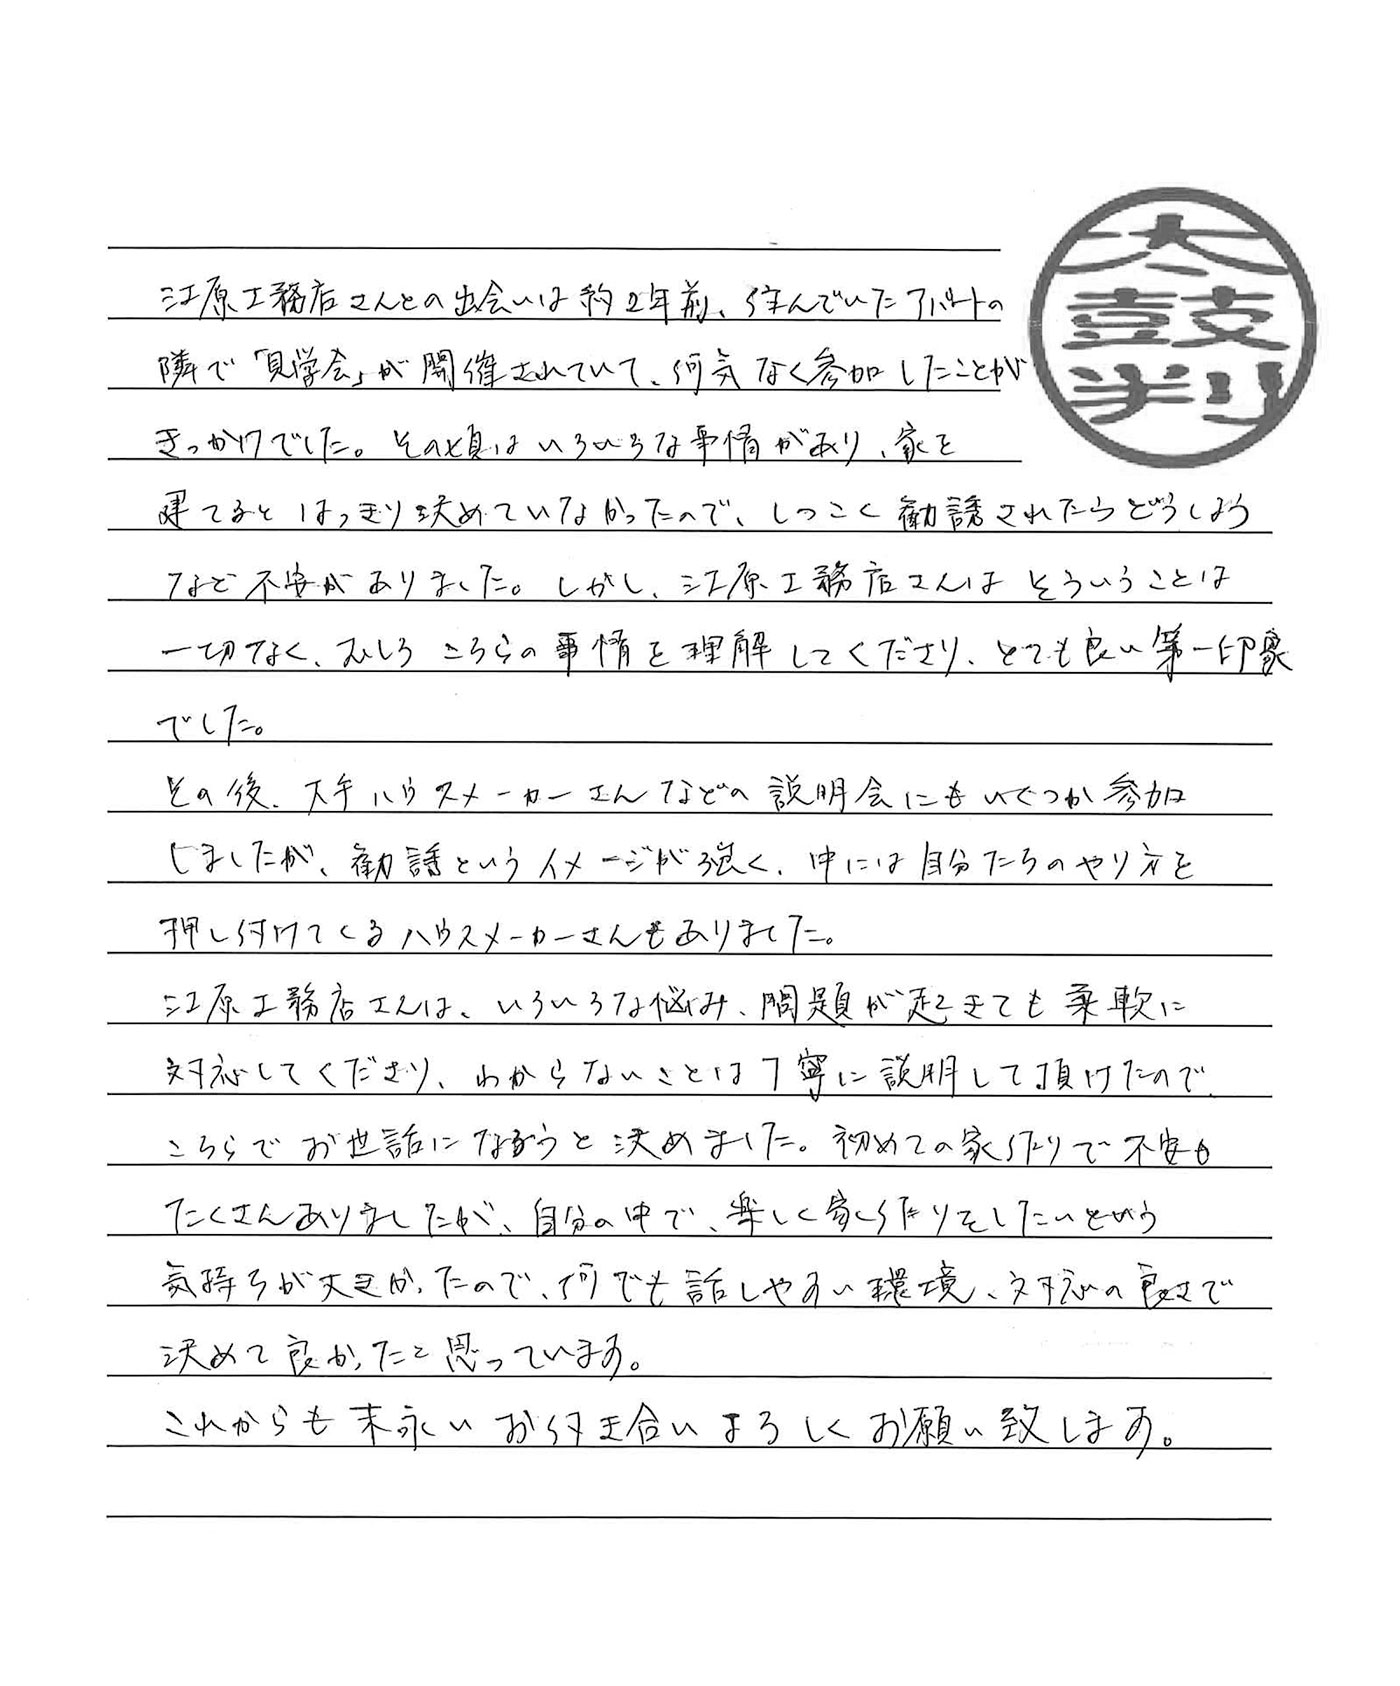 太鼓判
江原工務店さんとの出会いは約2年前、住んでいたアパートの
隣で「見学会」が開催されていて、何気なく参加したことが
きっかけでした。その頃はいろいろな事情があり、家を
建てるとはっきり決めていなかったので、しつこく勧誘されたらどうしよう
など不安がありました。しかし、江原工務店さんはそういうことは
一切なく、むしろこちらの事情を理解してくださり、とても良い第一印象
でした。
その後、大手ハウスメーカーさんなどの説明会にもいくつか参加
しましたが、勧誘というイメージが強く、中には自分たちのやり方を
押し付けてくるハウスメーカーさんもありました。
江原工務店さんは、いろいろな悩み、問題が起きても柔軟に
対応してくださり、わからないことは丁寧に説明して頂けたので、
こちらでお世話になろうと決めました。初めての家作りで不安も
たくさんありましたが、自分の中で、楽しく家作りをしたいという
気持ちが大きかったので、何でも話しやすい環境、対応の良さで
決めて良かったと思っています。
これからも末永いお付き合いよろしくお願い致します。